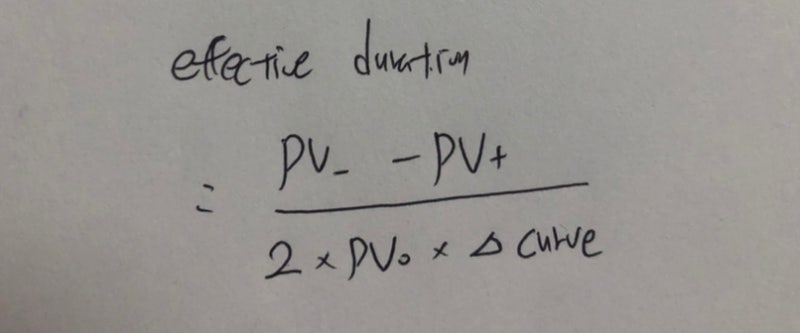 effective duration
= PV₋ - PV₊
2 × PV₀ × Δ curve